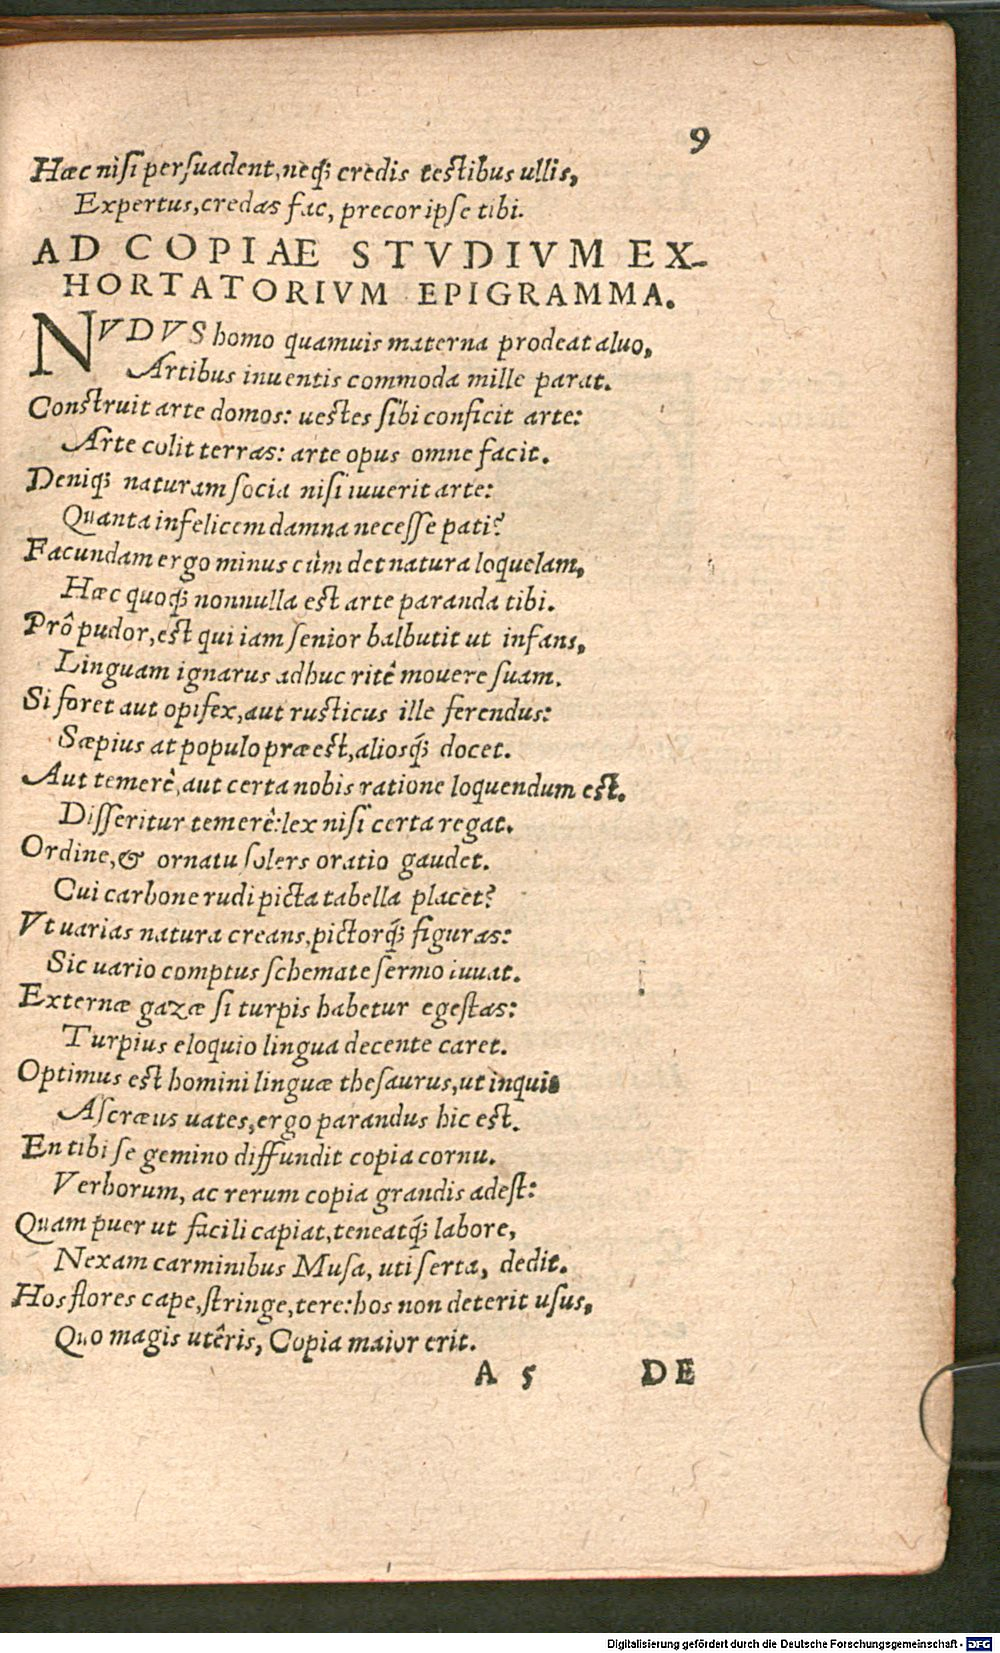 9
Hæc nisi persuadent, neq; credis testibus ullis,
Expertus, credas fac, precor ipse tibi.
AD COPIAE STVDIVM EX-
HORTATORIVM EPIGRAMMA.
NVDVS homo quamuis materna prodeat aluo,
Artibus inuentis commoda mille parat.
Construit arte domos: uestes sibi conficit arte:
Arte colit terras: arte opus omne facit.
Deniq; naturam socia nisi iuuerit arte:
Quanta infelicem damna necesse pati?
Facundam ergo minus cùm det natura loquelam,
Hæc quoq; nonnulla est arte paranda tibi.
Prô pudor, est qui iam senior balbutit ut infans,
Linguam ignarus adhuc ritê mouere suam.
Si foret aut opifex, aut rusticus ille ferendus:
Sæpius at populo præest, aliosq́; docet.
Aut temerê, aut certa nobis ratione loquendum est.
Disseritur temerê: lex nisi certa regat.
Ordine, & ornatu solers oratio gaudet.
Cui carbone rudi picta tabella placet?
Vt uarias natura creans, pictorq́; figuras:
Sic uario comptus schemate sermo iuuat.
Externæ gazæ si turpis habetur egestas:
Turpius eloquio lingua decente caret.
Optimus est homini linguæ thesaurus, ut inquis
Ascræus uates, ergo parandus hic est.
En tibi se gemino diffundit copia cornu.
Verborum, ac rerum copia grandis adest:
Quam puer ut facili capiat, teneatq́; labore,
Nexam carminibus Musa, uti serta, dedit.
Hos flores cape, stringe, tere: hos non deterit usus,
Quo magis utêris, Copia maior erit.
A 5 DE
Digitalisierung gefördert durch die Deutsche Forschungsgemeinschaft - DFG